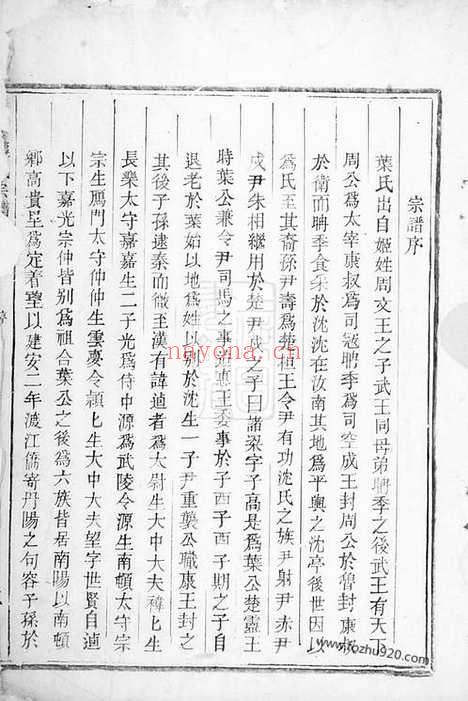 宗譜序
葉氏出自姬姓周文王之子武王同母弟聃季之後武王有天下
周公爲太宰康叔爲司冦聃季爲司空成王封周公於魯封康叔
於衛而聃季食采於沈沈在汝南其地爲平輿之沈亭後世因以
爲氏至其裔孫尹壽爲楚桓王令尹有功沈氏之族尹射尹赤尹
戍尹朱相繼用於楚尹戍之子曰諸梁字子高是爲葉公楚靈王
時葉公兼令尹司馬之事惠王委事於子西子西子期之子自
退老於葉始以地爲姓以别於沈生一子尹重襲公職康王封之
其後子孫逮秦而微至漢有諱逌者爲大尉生大中大夫禕匕生
長樂太守嘉嘉生二子光爲侍中源爲武陵令源生南頓太守宗
宗生鴈門太守仲仲生重慶令頴匕生大中大夫望字世賢自逌
以下嘉光宗仲皆别爲祖合葉公之後爲六族皆居南陽以南頓
鄉高貴里爲定着望以建安二年渡江僑寄丹陽之句容子孫於
nayona.cn
www.fozhu920.com